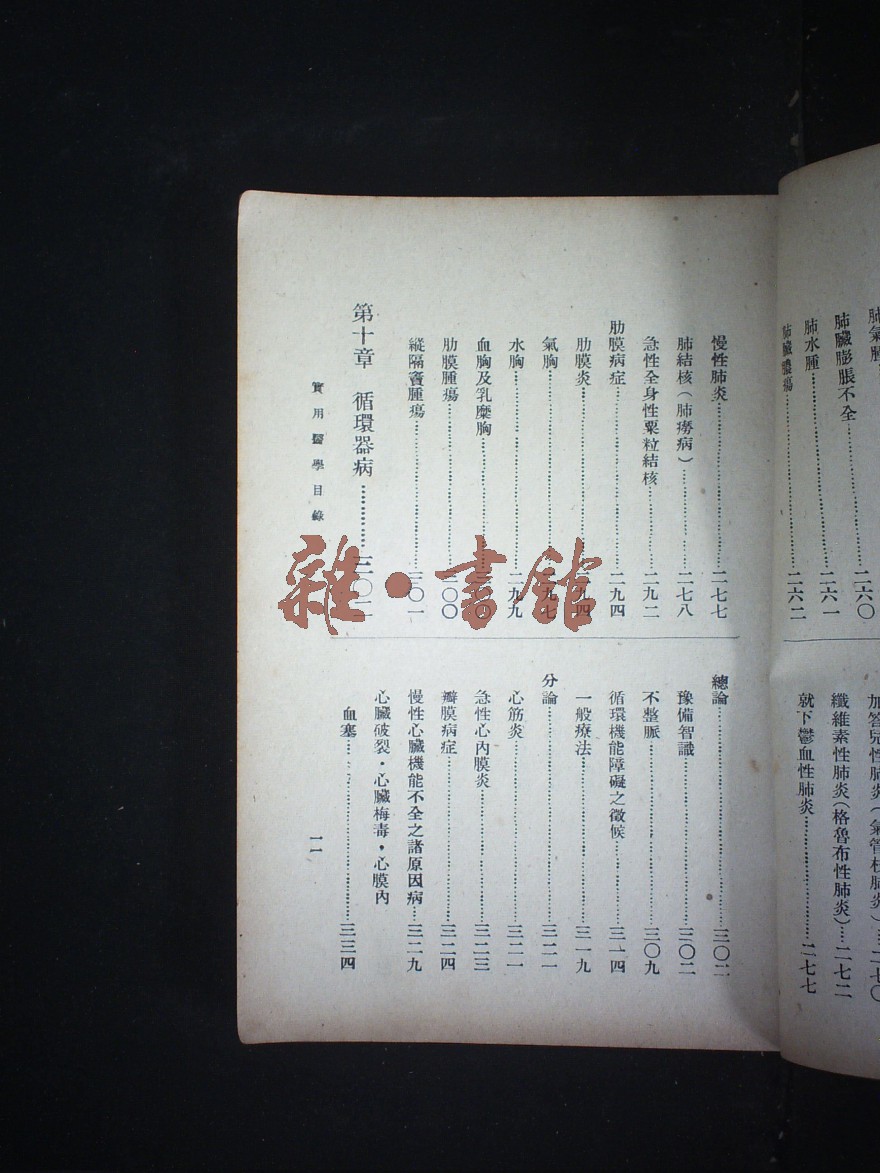 肺臟膨脹不全……二六〇
肺水腫……二六一
肺臟膿瘍……二六二
加答兒性肺炎(氣管枝肺炎)…二七〇
纖維素性肺炎(格魯布性肺炎)…二七二
就下鬱血性肺炎……二七七
慢性肺炎……二七七
肺結核(肺癆病)……二七八
急性全身性粟粒結核……二九二
肋膜病症……二九四
肋膜炎……二九四
氣胸……二九七
水胸……二九九
血胸及乳糜胸……三〇〇
肋膜腫瘍……三〇〇
縱隔竇腫瘍……三〇一
第十章 循環器病……三〇二
總論……三〇二
豫備智識……三〇二
不整脈……三〇九
循環機能障礙之徵候……三一四
一般療法……三一九
分論……三二一
心筋炎……三二一
急性心內膜炎……三二三
瓣膜病症……三二四
慢性心臟機能不全之諸原因病…三二九
心臟破裂・心臟梅毒・心膜內
血塞……三三四
實用醫學目錄
一一
雜·書館